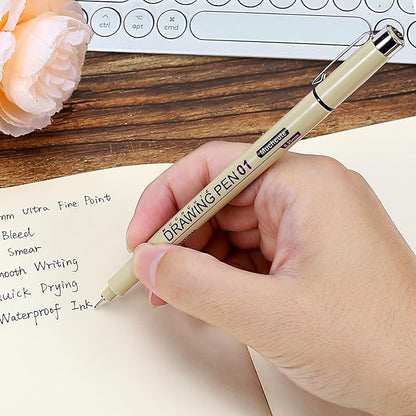 ctrl
option
cmd
MICRO-LINE
DRAWING PEN 01
Muchcute
mm Ultra Fine Point
Bleed
Smear
mooth Writing
Quick Drying
Waterproof Ink